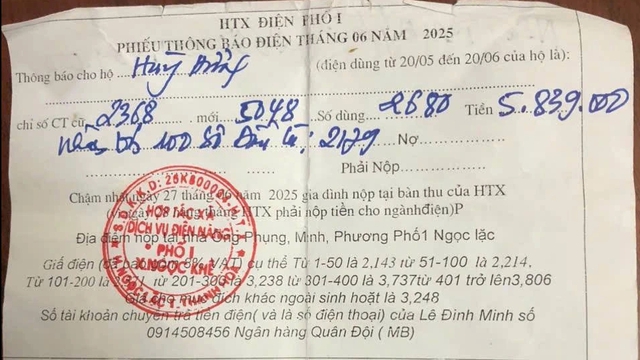 HTX ĐIỆN PHỐ I
PHIẾU THÔNG BÁO ĐIỆN THÁNG 06 NĂM 2025
Thông báo cho hộ (điện dùng từ 20/05 đến 20/06 của hộ là):
chỉ số CT cũ 2368 mới 5048 Số dùng 2680 Tiền 5.839.000
100 Số Đầu là: 2179 Nợ
Phải Nộp
Chậm nhất ngày 27 tháng 06 năm 2025 gia đình nộp tại bàn thu của HTX
HTX phải nộp tiền cho ngànhđiện)P
Địa điểm nộp tại nhà Ông Phụng, Minh, Phương Phố1 Ngọc lặc
Giá điện (đã bao gồm 8% VAT) cụ thể Từ 1-50 là 2,143 từ 51-100 là 2,214.
Từ 101-200 là rừ 201-300 là 3,238 từ 301-400 là 3,737từ 401 trở lên3,806
Giá cho mục đích khác ngoài sinh hoặt là 3,248
Số tài khoản chuyển trả tiền điện( và là số điện thoại) của Lê Đình Minh số
0914508456 Ngân hàng Quân Đội ( MB)
HỢP TÁC XÃ
DỊCH VỤ ĐIỆN NĂNG
PHỐ I
X.NGỌC KHÊ